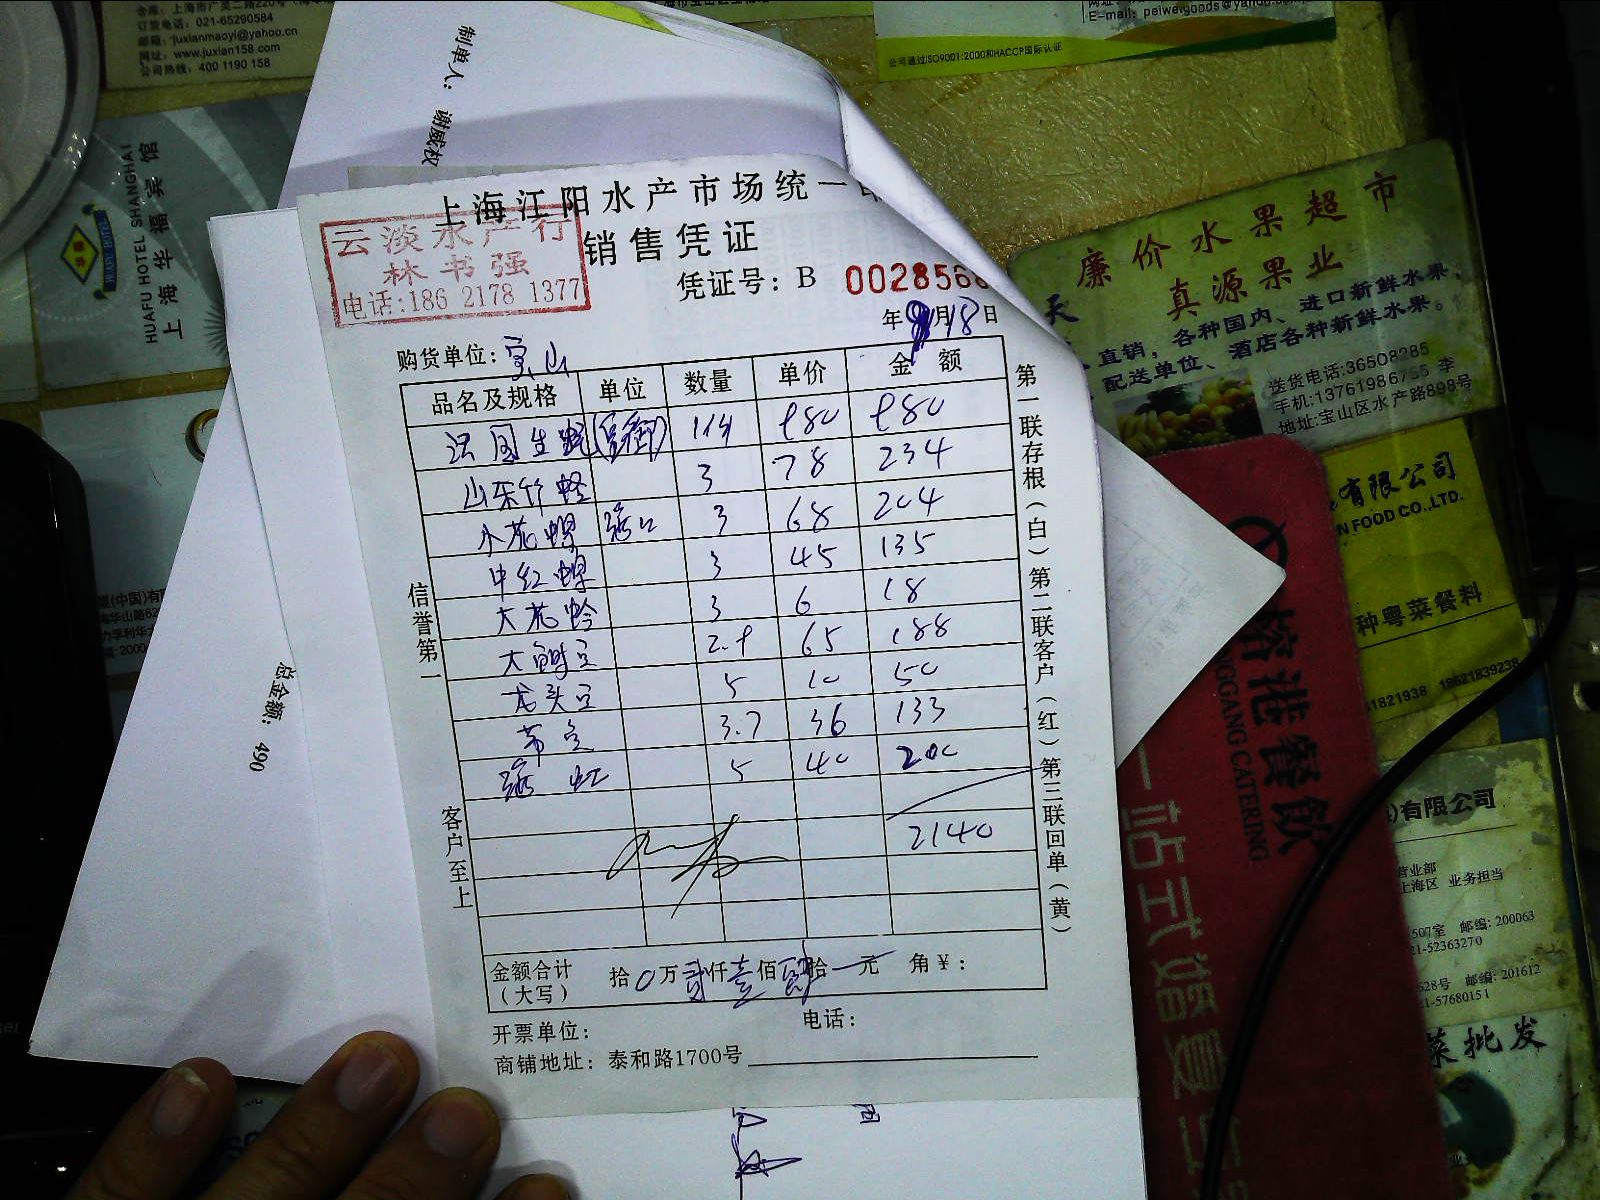 订货电话：021-65290584
邮箱：juxianmaoyi@yahoo.cn
网址：www.juxian158.com
公司热线：400 1190 158
E-mail：peiwei.goods@yahoo
公司通过ISO9001:2000和HACCP国际认证
制单人： 谢威权
HUAFU HOTEL SHANGHAI
上海华福宾馆
上海江阳水产市场统一
销售凭证
云淡水产行
林书强
电话:186 2178 1377
凭证号：B 0028568
年 月18日
购货单位：宝山
品名及规格 单位 数量 单价 金额
法国生蚝 114 980 980
山东竹蛏 3 78 234
小花螺 3 68 204
中红螺 3 45 135
大花蛤 3 6 18
大 2.9 65 188
龙头 5 10 50
3.7 36 133
5 40 200
2140
金额合计 拾0万贰仟壹佰肆拾 元 角￥：
（大写）
开票单位： 电话：
商铺地址：泰和路1700号
信誉第一
客户至上
第一联存根（白）第二联客户（红）第三联回单（黄）
总金额： 490
廉价水果超市
真源果业
直销，各种国内、进口新鲜水果，
配送单位、酒店各种新鲜水果。
送货电话:36508285
手机:13761986755 李
地址:宝山区水产路898号
有限公司
N FOOD CO.,LTD.
种粤菜餐料
1821938 18621839238
港餐飲
GGANG CATERING
一站式
有限公司
营业部
上海区 业务担当
507室 邮编: 200063
21-52363270
528号 邮编: 201612
1-57680151
菜批发